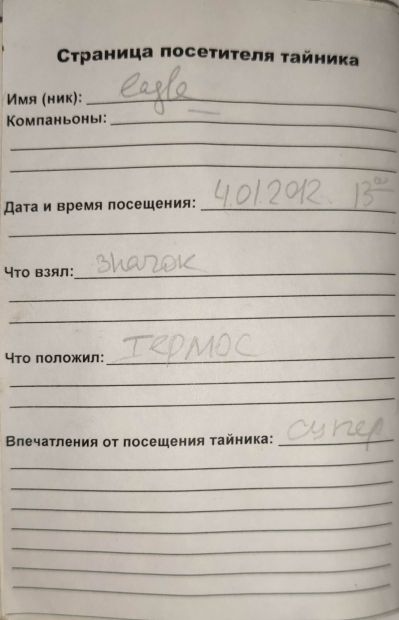 Страница посетителя тайника
Имя (ник): eagle
Компаньоны: —
Дата и время посещения: 4.01.2012. 13 00
Что взял: значок
Что положил: термос
Впечатления от посещения тайника: супер